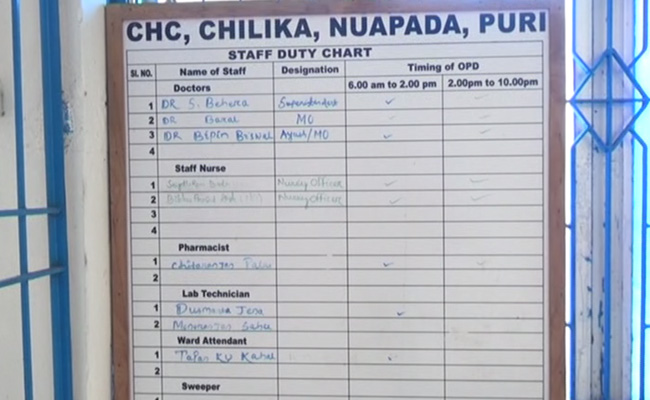 CHC, CHILIKA, NUAPADA, PURI
STAFF DUTY CHART
SL. NO. Name of Staff Designation Timing of OPD
6.00 am to 2.00 pm 2.00pm to 10.00pm
Doctors
1 DR S. Behera Superintendent ✓
2 DR Baral MO
3 DR BIPIN Biswal Ayush/MO ✓
4
Staff Nurse
1 Nursing Officer ✓ ✓
2 Nursing Officer ✓ ✓
3
4
Pharmacist
1 Chitaranjan ✓ ✓
2
Lab Technician
1 Jena ✓
2 Sahu
Ward Attendant
1 Tapan KU
2
Sweeper